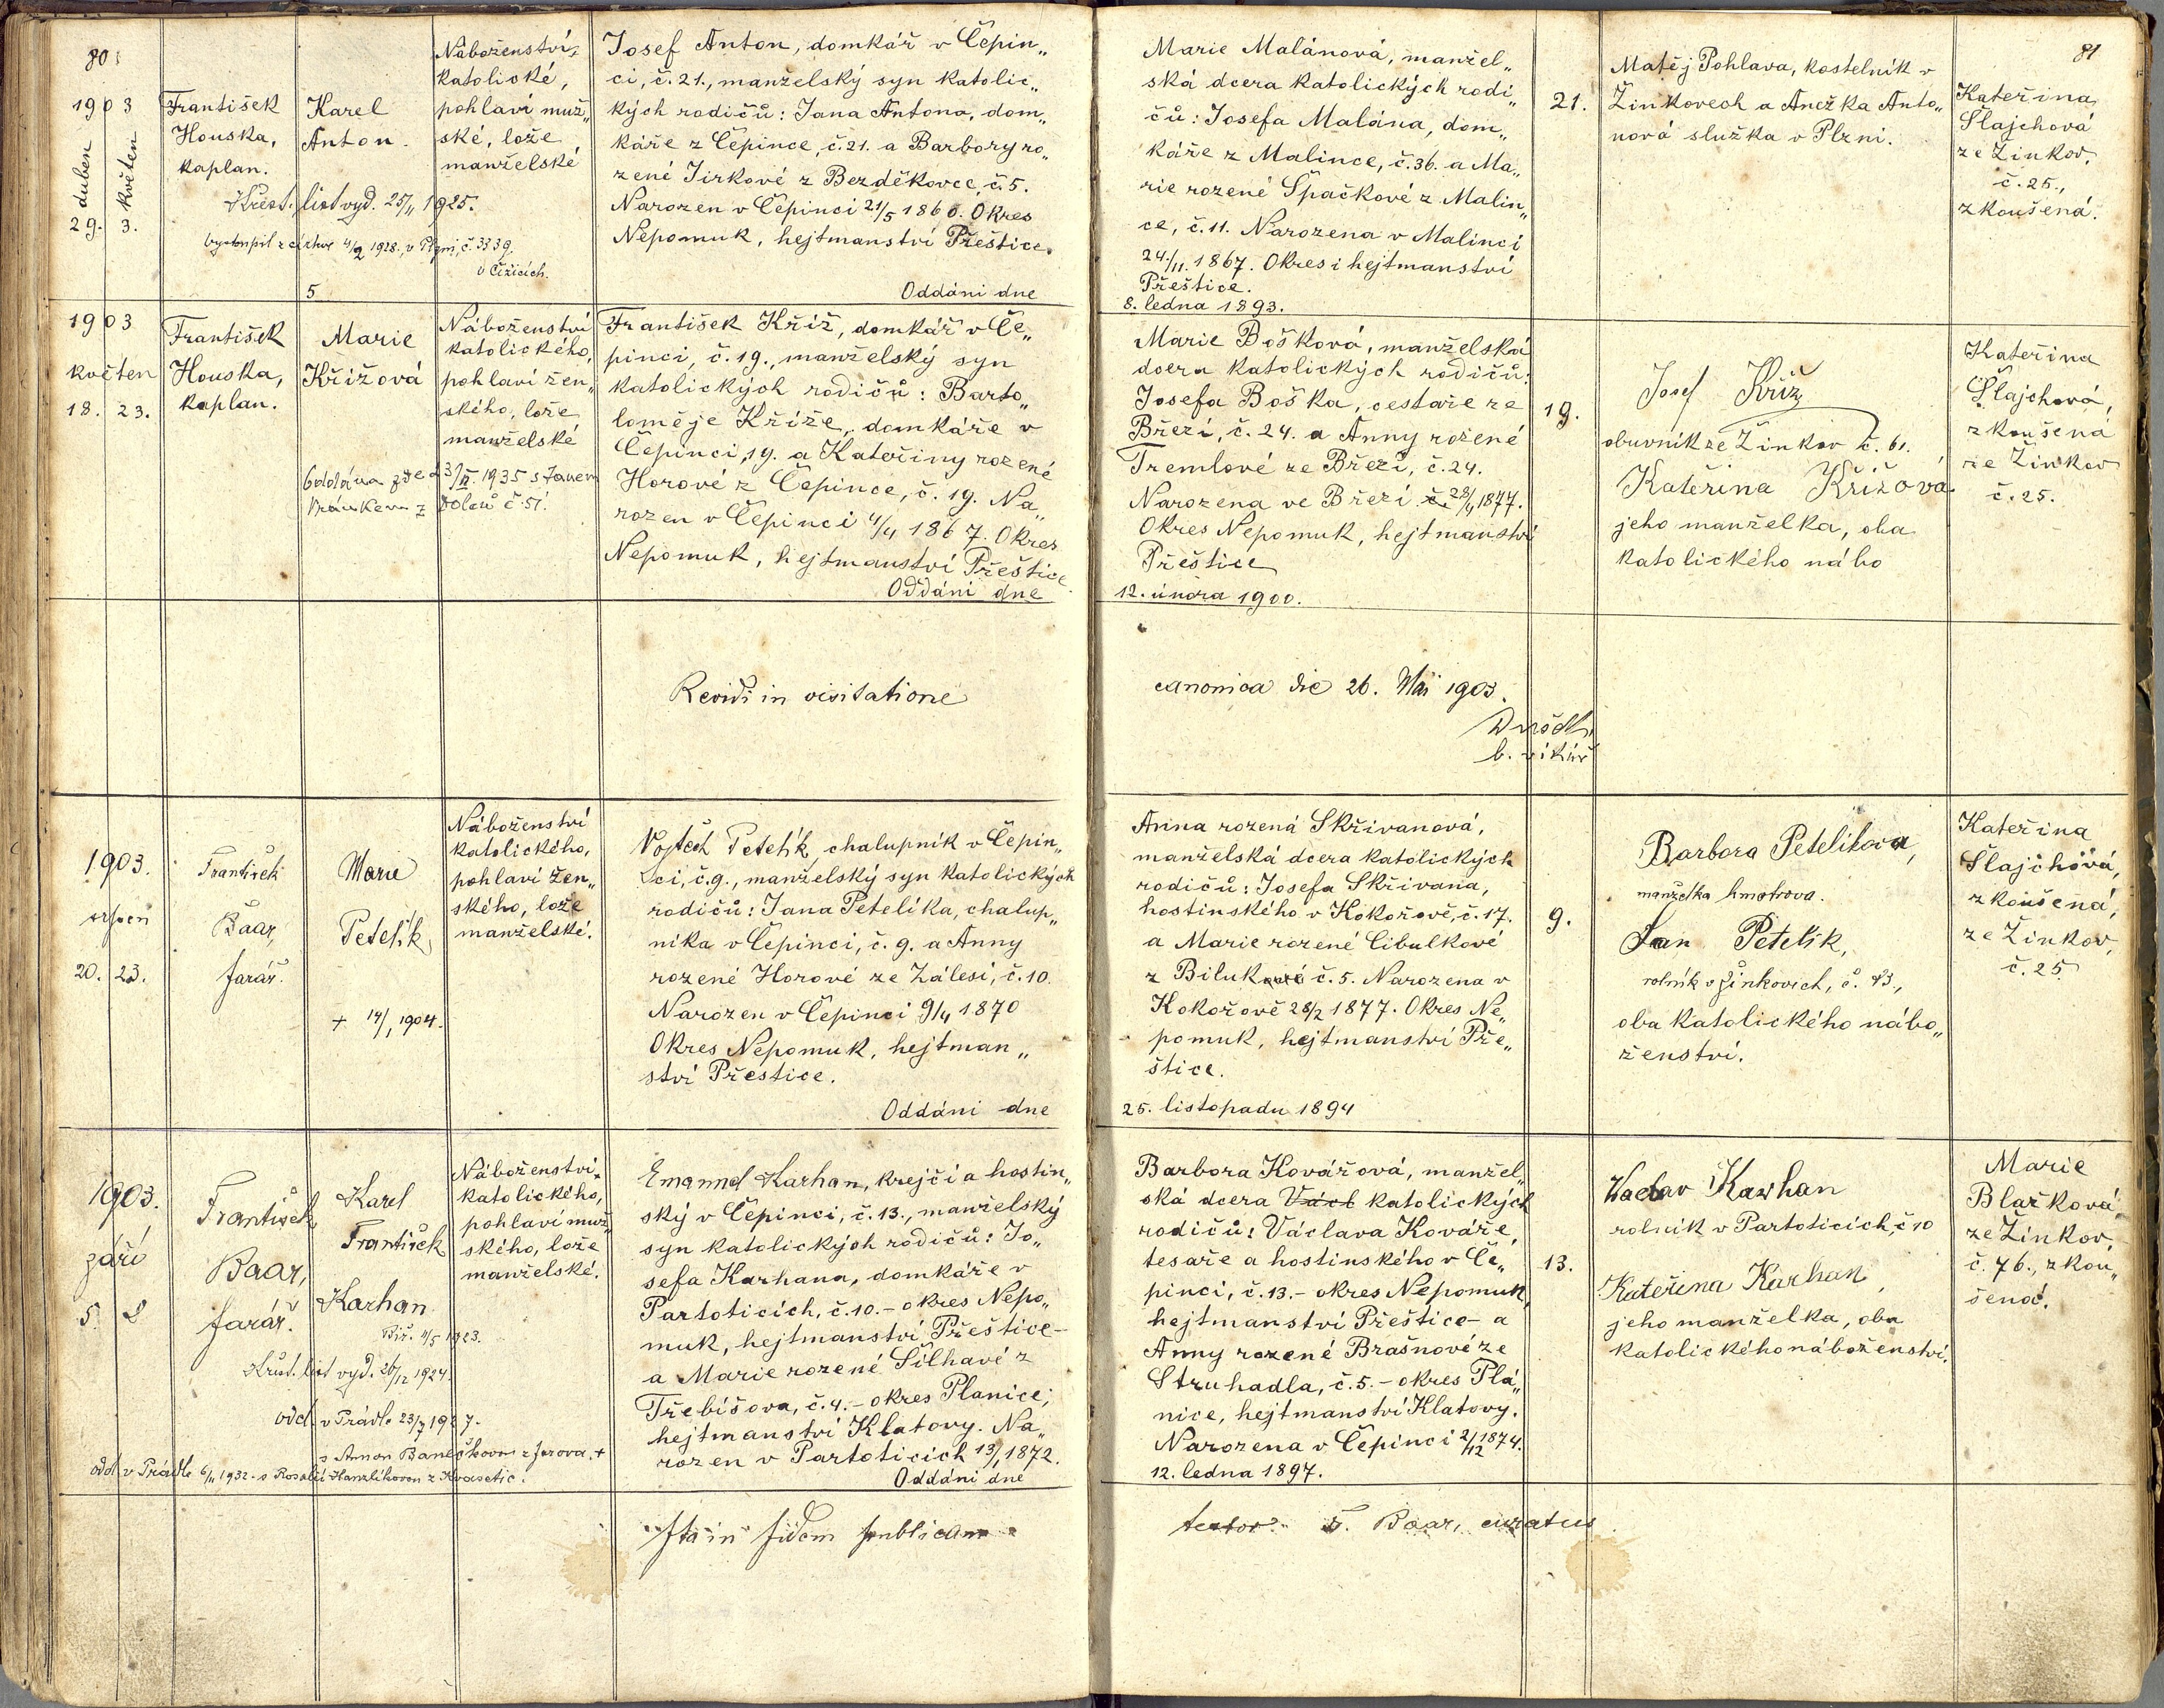 80.
1903
duben
květen
29. 3.
František
Houska,
kaplan.
Karel
Anton.
Křest. list vyd. 25/11 1925.
vystoupil z církve 4/2 1928, v Plzni, č. 3339.
v Čižicích.
5
Náboženství
katolické,
pohlaví muž„
ské, lože
manželské
Josef Anton, domkář v Čepin„
ci, č. 21., manželský syn katolic„
kých rodičů: Jana Antona, dom„
káře z Čepince, č. 21. a Barbory ro„
zené Jirkové z Bezděkovce, č. 5.
Narozen v Čepinci 21/5 1860. Okres
Nepomuk, hejtmanství Přeštice.
Oddáni dne
Marie Malánová, manžel„
ská dcera katolických rodi„
čů: Josefa Malána, dom„
káře z Malince, č. 36. a Ma„
rie rozené Špačkové z Malin„
ce, č. 11. Narozena v Malinci
24/11. 1867. Okres i hejtmanství
Přeštice.
8. ledna 1893.
21.
Matěj Pohlava, kostelník v
Žinkovech a Anežka Anto„
nová služka v Plzni.
81
Kateřina
Šlajchová
ze Žinkov,
č. 25.,
zkoušená.
1903
květen
18. 23.
František
Houska,
kaplan.
Marie
Křížová
Oddána zde 23/II. 1935 s Janem
Vránkem z Dolců č. 51.
Náboženství
katolického,
pohlaví žen„
ského, lože
manželské
František Kříž, domkář v Če„
pinci, č. 19., manželský syn
katolických rodičů: Barto„
loměje Kříže, domkáře v
Čepinci, 19. a Kateřiny rozené
Horové z Čepince, č. 19. Na„
rozen v Čepinci 4/4 1867. Okres
Nepomuk, hejtmanství Přeštice.
Oddáni dne
Marie Bošková, manželská
dcera katolických rodičů:
Josefa Boška, cestaře ze
Březí, č. 24. a Anny rozené
Tremlové ze Březí, č. 24.
Narozena ve Březí č. 28/1 1877.
Okres Nepomuk, hejtmanství
Přeštice
12. února 1900.
19.
Josef Kříž
obuvník ze Žinkov č. 61.
Kateřina Křížová
jeho manželka, oba
katolického nábo
Kateřina
Šlajchová,
zkoušená
ze Žinkov
č. 25.
Revidi in visitatione
canonica die 26. Mai 1903.
b. vikář
1903.
srpen
20. 23.
František
Baar,
farář.
Marie
Petelík,
+ 14/1 1904.
Náboženství
katolického,
pohlaví žen„
ského, lože
manželské.
Vojtěch Petelík, chalupník v Čepin„
ci, č. 9., manželský syn katolických
rodičů: Jana Petelíka, chalup„
níka v Čepinci, č. 9. a Anny
rozené Horové ze Zálesí, č. 10.
Narozen v Čepinci 9/4 1870
Okres Nepomuk, hejtman„
ství Přeštice.
Oddáni dne
Anna rozená Skřivanová,
manželská dcera katolických
rodičů: Josefa Skřivana,
hostinského v Kokořově, č. 17.
a Marie rozené Cibulkové
z Biluk č. 5. Narozena v
Kokořově 28/2 1877. Okres Ne„
pomuk, hejtmanství Pře„
štice.
25. listopadu 1894
9.
Barbora Petelíkova,
manželka kmotrova.
Jan Petelík,
rolník v Žinkovich, č. 43.,
oba katolického nábo„
ženství.
Kateřina
Šlajchová,
zkoušená,
ze Žinkov,
č. 25
1903.
září
5. 8
František
Baar,
farář.
Karel
František
Karhan
Biř. 4/5 1923.
Křest. list vyd. 20/12 1924.
odd. v Prádle 23/7 1927.
s Annou Banečkovou z Jarova. +
odd. v Prádle 6/11 1932. s Rosalií Hanzlíkovou z Kvasetic.
Náboženství
katolického,
pohlaví muž„
ského, lože
manželské.
Emanuel Karhan, krejčí a hostin„
ský v Čepinci, č. 13., manželský
syn katolických rodičů: Jo„
sefa Karhana, domkáře v
Partoticích, č. 10. – okres Nepo„
muk, hejtmanství Přeštice –
a Marie rozené Šilhavé z
Třebíšova, č. 4. – okres Planice;
hejtmanství Klatovy. Na„
rozen v Partoticích 13/1 1872.
Oddáni dne
Barbora Kovářová, manžel„
ská dcera Václ katolických
rodičů: Václava Kováře,
tesaře a hostinského v Če„
pinci, č. 13. – okres Nepomuk,
hejtmanství Přeštice – a
Anny rozené Brašnové ze
Struhadla, č. 5. – okres Plá„
nice, hejtmanství Klatovy.
Narozena v Čepinci 2/12 1874.
12. ledna 1897.
13.
Vaclav Karhan
rolník v Partoticích, č. 10
Kateřina Karhan,
jeho manželka, oba
katolického náboženství.
Marie
Blažková,
ze Žinkov,
č. 76., zkou„
šená.
Ita in fidem publicam
testor F. Baar, curatus